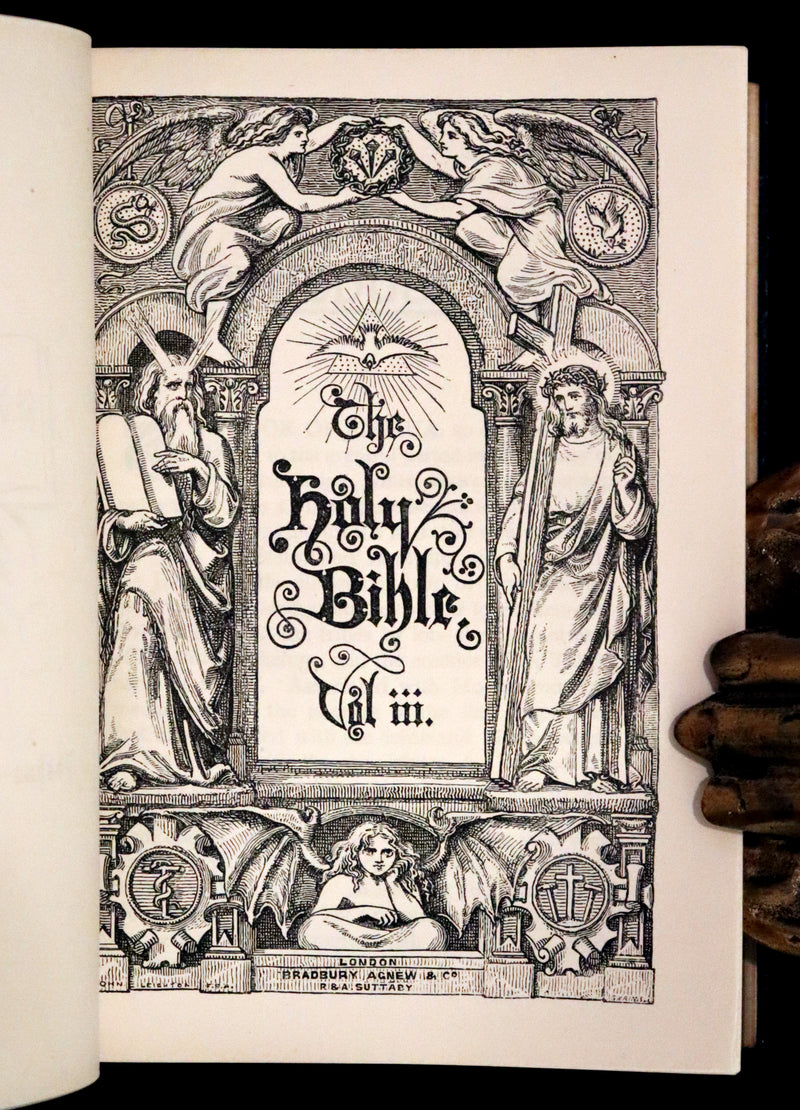 The
Holy
Bible.
Vol iii.
LONDON
BRADBURY AGNEW & Co
R & A SUTTABY
OHN LEIGHTON F.S.A.